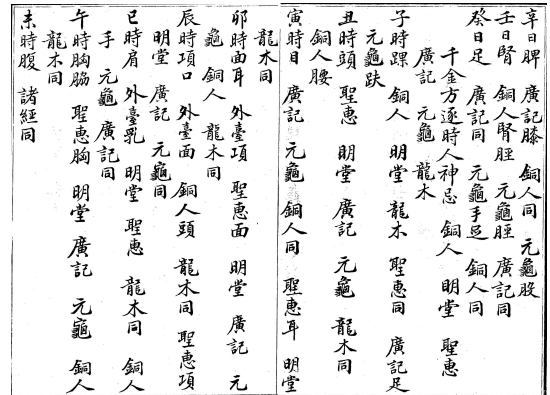 辛日脾 廣記膝 銅人同 元龜股
壬日腎 銅人腎脛 元龜脛 廣記同
癸日足 廣記同 元龜手足 銅人同
千金方逐時人神忌 銅人 明堂 聖惠
廣記 元龜 龍木
子時踝 銅人 明堂 龍木 聖惠同 廣記足
元龜趺
丑時頭 聖惠 明堂 廣記 元龜 龍木同
銅人腰
寅時目 廣記 元龜 銅人同 聖惠耳 明堂
龍木同
卯時面耳 外臺項 聖惠面 明堂 廣記 元
龜 銅人 龍木同
辰時項口 外臺面 銅人頭 龍木同 聖惠項
明堂 廣記 元龜同
巳時肩 外臺乳 明堂 聖惠 龍木同 銅人
手 元龜 廣記同
午時胸脇 聖惠胸 明堂 廣記 元龜 銅人
龍木同
未時腹 諸經同